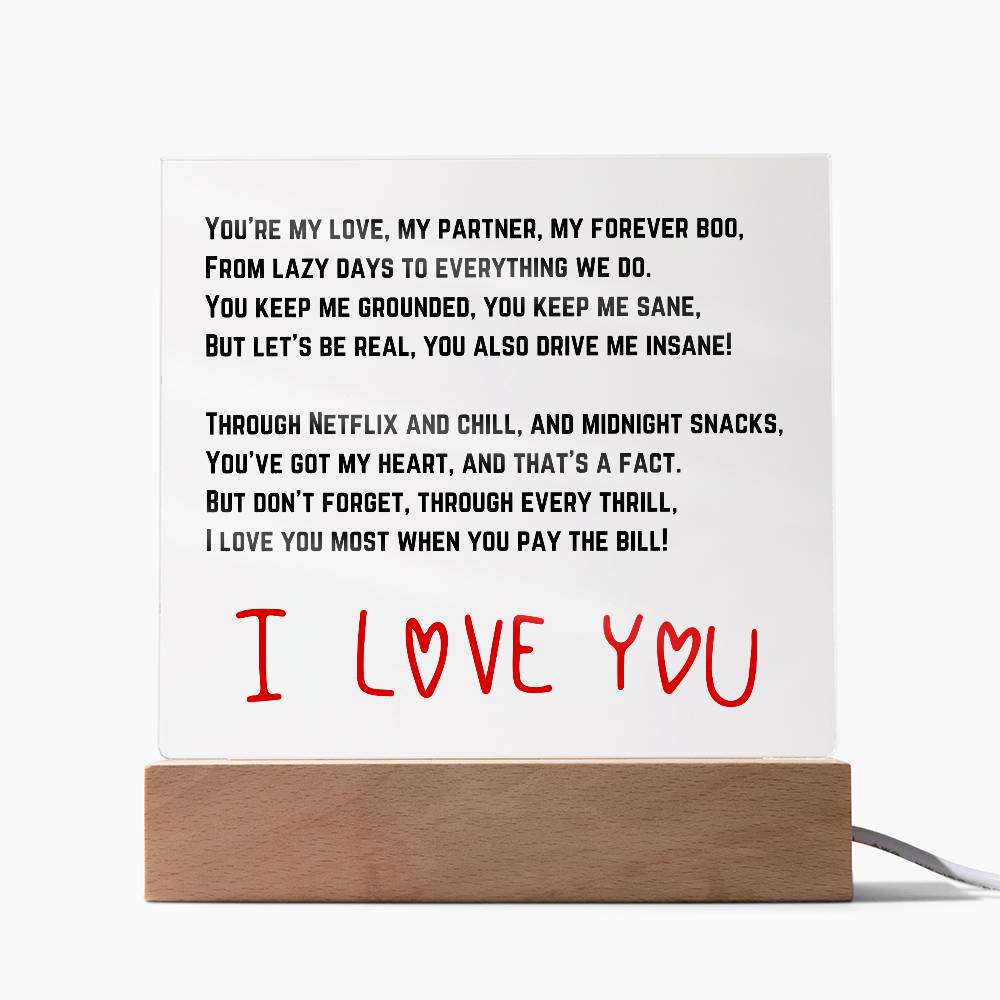 You're my love, my partner, my forever boo,
From lazy days to everything we do.
You keep me grounded, you keep me sane,
But let's be real, you also drive me insane!
Through Netflix and chill, and midnight snacks,
You've got my heart, and that's a fact.
But don't forget, through every thrill,
I love you most when you pay the bill!
I LOVE YOU